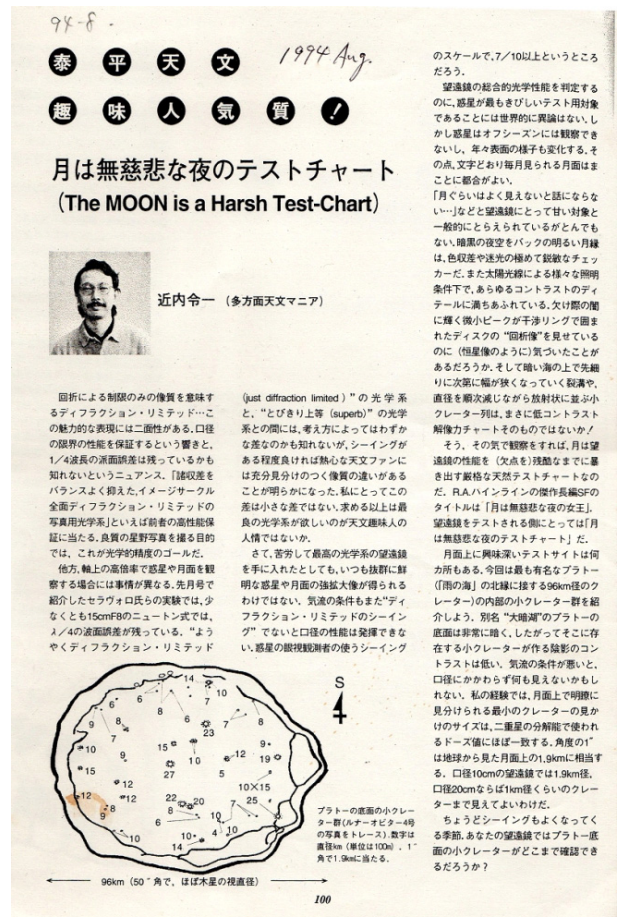 94-8.
1994 Aug.
泰平天文
趣味人気質!
月は無慈悲な夜のテストチャート
(The MOON is a Harsh Test-Chart)
近内令一(多方面天文マニア)
回折による制限のみの像質を意味す
るディフラクション・リミテッド…こ
の魅力的な表現には二面性がある。口径
の限界の性能を保証するという響きと、
1/4波長の派面誤差は残っているかも
知れないというニュアンス。「諸収差を
バランスよく抑えた、イメージサークル
全面ディフラクション・リミテッドの
写真用光学系」といえば前者の高性能保
証に当たる。良質の星野写真を撮る目的
では、これが光学的精度のゴールだ。
他方、軸上の高倍率で惑星や月面を観
察する場合には事情が異なる。先月号で
紹介したセラヴォロ氏らの実験では、少
なくとも15cmF8のニュートン式では、
λ/4の波面誤差が残っている。“よう
やくディフラクション・リミテッド
(just diffraction limited)”の光学系
と、“とびきり上等(superb)”の光学
系との間には、考え方によってはわずか
な差なのかも知れないが、シーイングが
ある程度良ければ熱心な天文ファンに
は充分見分けのつく像質の違いがある
ことが明らかになった。私にとってこの
差は小さな差ではない。求める以上は最
良の光学系が欲しいのが天文趣味人の
人情ではないか。
さて、苦労して最高の光学系の望遠鏡
を手に入れたとしても、いつも抜群に鮮
明な惑星や月面の強拡大像が得られる
わけではない。気流の条件もまた“ディ
フラクション・リミテッドのシーイン
グ”でないと口径の性能は発揮できな
い。惑星の眼視観測者の使うシーイング
のスケールで、7/10以上というところ
だろう。
望遠鏡の総合的光学性能を判定する
のに、惑星が最もきびしいテスト用対象
であることには世界的に異論はない。し
かし惑星はオフシーズンには観察でき
ないし、年々表面の様子も変化する。そ
の点、文字どおり毎月見られる月面はま
ことに都合がよい。
「月ぐらいはよく見えないと話にならな
い…」などと望遠鏡にとって甘い対象と
一般的にとらえられているがとんでも
ない。暗黒の夜空をバックの明るい月縁
は、色収差や迷光の極めて鋭敏なチェッ
カーだ。また太陽光線による様々な照明
条件下で、あらゆるコントラストのディ
テールに満ちあふれている。欠け際の闇
に輝く微小ピークが干渉リングで囲ま
れたディスクの“回折像”を見せている
のに(恒星像のように)気づいたことが
あるだろうか。そして暗い海の上で先細
りに次第に幅が狭くなっていく裂溝や、
直径を順次減じながら放射状に並ぶ小
クレーター列は、まさに低コントラスト
解像力チャートそのものではないか!
そう、その気で観察をすれば、月は望
遠鏡の性能を(欠点を)残酷なまでに暴
き出す厳格な天然テストチャートなの
だ。R.A.ハインラインの傑作長編SFの
タイトルは「月は無慈悲な夜の女王」。
望遠鏡をテストされる側にとっては「月
は無慈悲な夜のテストチャート」だ。
月面上に興味深いテストサイトは何
カ所もある。今回は最も有名なプラトー
(「雨の海」の北縁に接する96km径のク
レーター)の内部の小クレーター群を紹
介しよう。別名“大暗湖”のプラトーの
底面は非常に暗く、したがってそこに存
在する小クレーターが作る陰影のコン
トラストは低い。気流の条件が悪いと、
口径にかかわらず何も見えないかもし
れない。私の経験では、月面上で明瞭に
見分けられる最小のクレーターの見か
けのサイズは、二重星の分解能で使われ
るドーズ値にほぼ一致する。角度の1″
は地球から見た月面上の1.9kmに相当す
る。口径10cmの望遠鏡では1.9km径、
口径20cmならば1km径くらいのクレー
ターまで見えてよいわけだ。
ちょうどシーイングもよくなってく
る季節、あなたの望遠鏡ではプラトー底
面の小クレーターがどこまで確認でき
るだろうか?
S
14
10
6
9
6
8
6
7
8
23
7
10
9
15
10
15
27
12
19
5
12
12
10×15
12
8
9
22
20
8
7
25
6
10
4
10
10
14
プラトーの底面の小クレー
ター群(ルナーオビター4号
の写真をトレース)。数字は
直径km(単位は100m)、1″
角で1.9kmに当たる。
96km(50″角で、ほぼ木星の視直径)
100